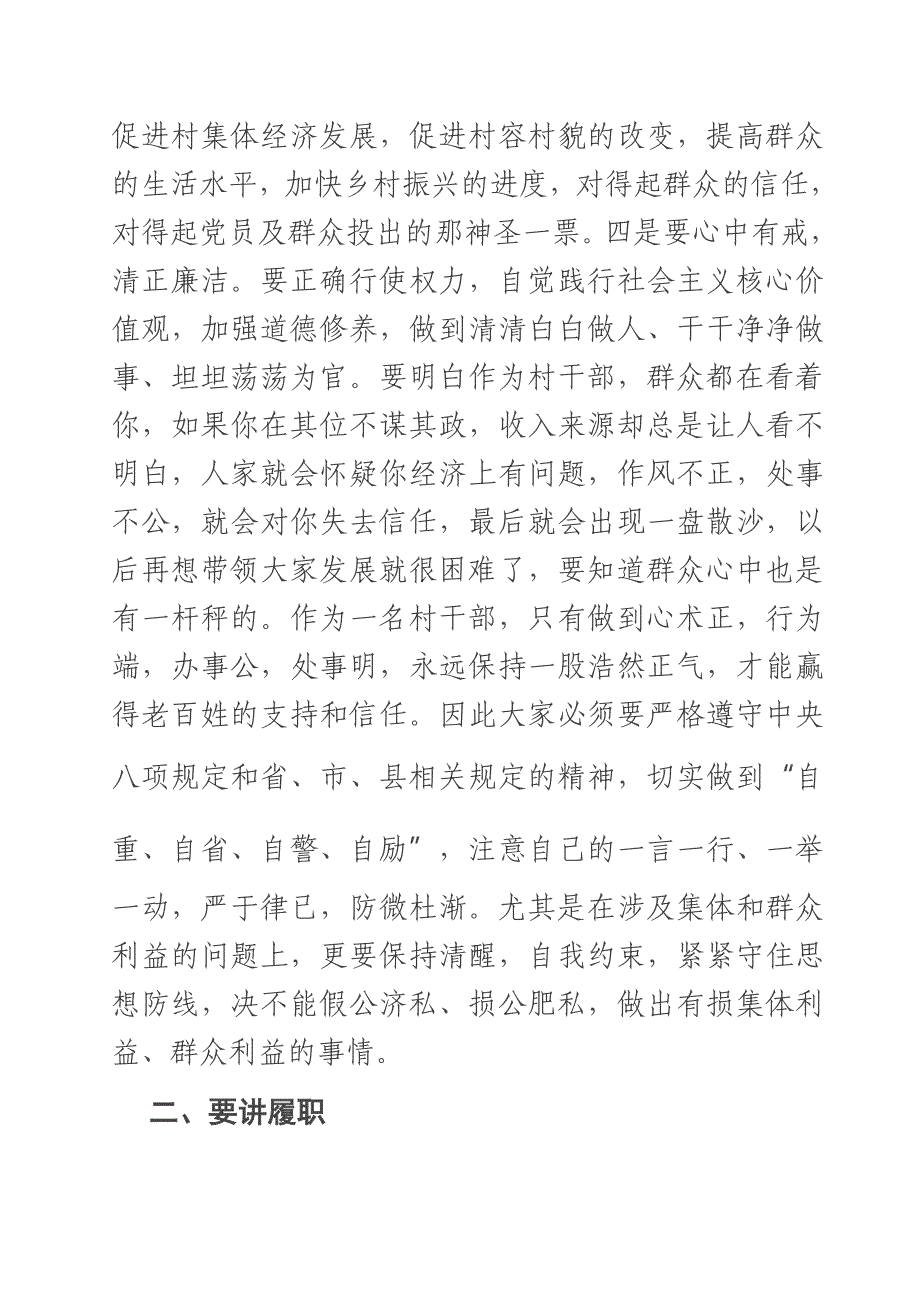 促进村集体经济发展，促进村容村貌的改变，提高群众
的生活水平，加快乡村振兴的进度，对得起群众的信任，
对得起党员及群众投出的那神圣一票。四是要心中有戒，
清正廉洁。要正确行使权力，自觉践行社会主义核心价
值观，加强道德修养，做到清清白白做人、干干净净做
事、坦坦荡荡为官。要明白作为村干部，群众都在看着
你，如果你在其位不谋其政，收入来源却总是让人看不
明白，人家就会怀疑你经济上有问题，作风不正，处事
不公，就会对你失去信任，最后就会出现一盘散沙，以
后再想带领大家发展就很困难了，要知道群众心中也是
有一杆秤的。作为一名村干部，只有做到心术正，行为
端，办事公，处事明，永远保持一股浩然正气，才能赢
得老百姓的支持和信任。因此大家必须要严格遵守中央
八项规定和省、市、县相关规定的精神，切实做到“自
重、自省、自警、自励”，注意自己的一言一行、一举
一动，严于律已，防微杜渐。尤其是在涉及集体和群众
利益的问题上，更要保持清醒，自我约束，紧紧守住思
想防线，决不能假公济私、损公肥私，做出有损集体利
益、群众利益的事情。
二、要讲履职